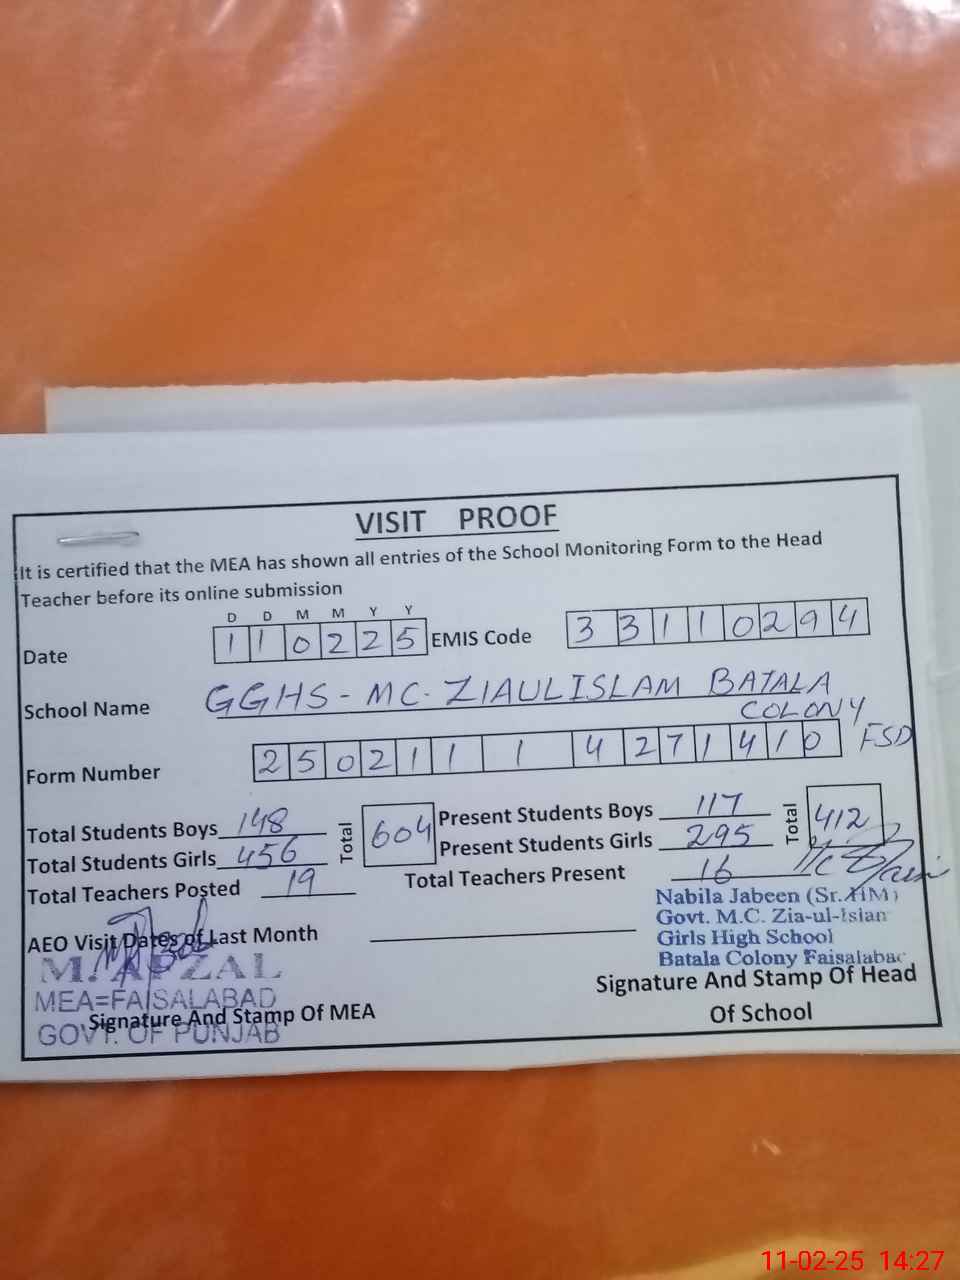 VISIT PROOF
It is certified that the MEA has shown all entries of the School Monitoring Form to the Head
Teacher before its online submission
D D M M Y Y
Date 1 1 0 2 2 5 EMIS Code 3 3 1 1 0 2 9 4
School Name GGHS - MC. ZIAULISLAM BATALA
COLONY
FSD
Form Number 2 5 0 2 1 1 1 4 2 7 1 4 1 0
Total Students Boys 148 Total 604 Present Students Boys 117 Total 412
Total Students Girls 456 Present Students Girls 295
Total Teachers Posted 19 Total Teachers Present 16
Nabila Jabeen (Sr. HM)
Govt. M.C. Zia-ul-Islam
Girls High School
Batala Colony Faisalabad
AEO Visit Dates of Last Month
M. AFZAL
MEA=FAISALABAD
GOVT. OF PUNJAB
Signature And Stamp Of MEA
Signature And Stamp Of Head
Of School
11-02-25 14:27